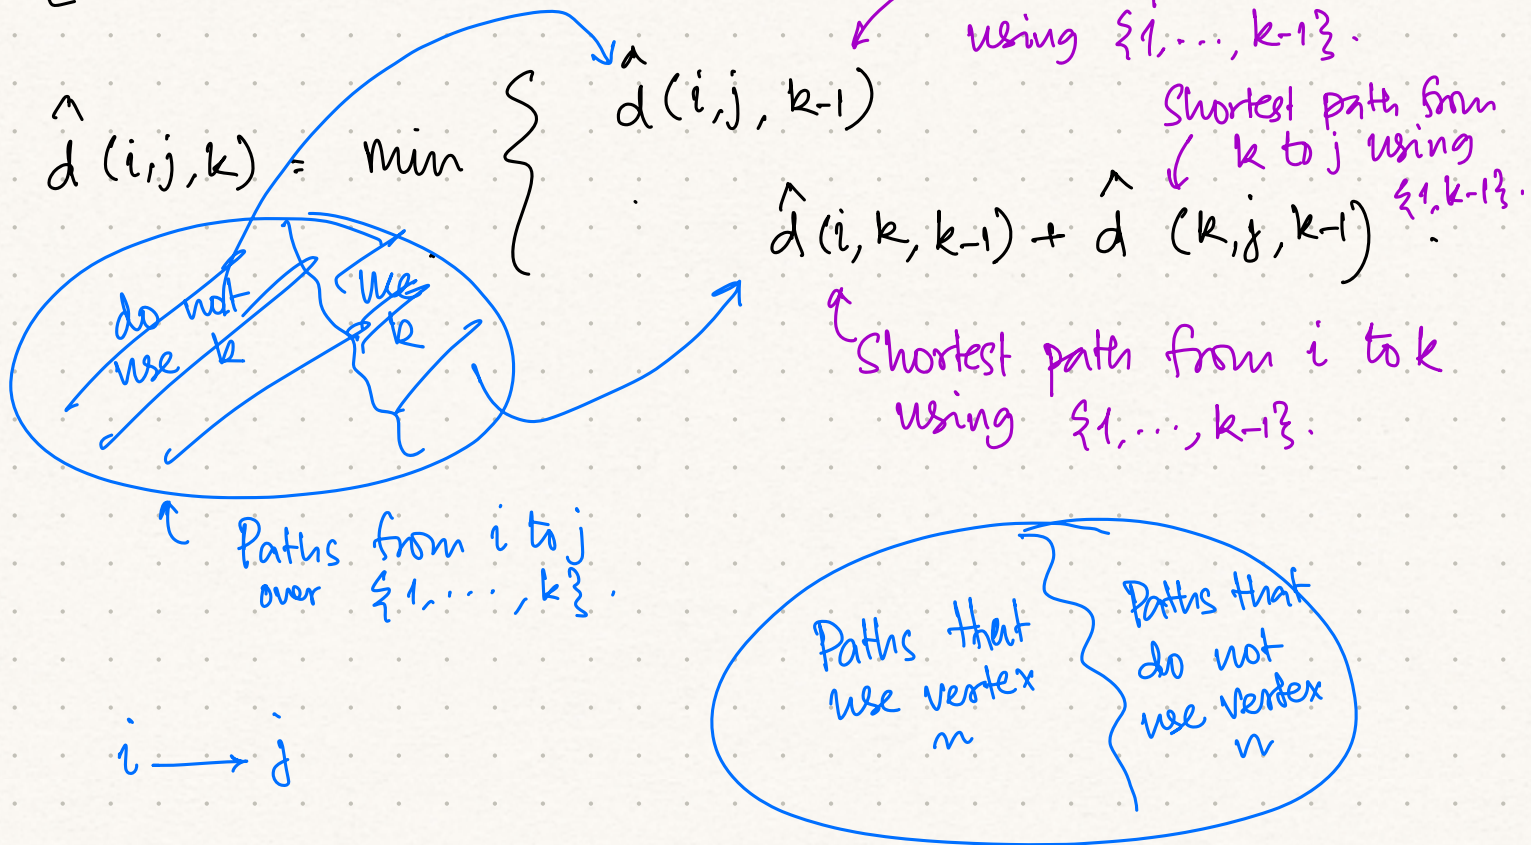 using {1,...,k-1}.
d̂(i,j,k-1)
d̂(i,j,k) = min {
Shortest path from
k to j using
{1,k-1}.
d̂(i,k,k-1) + d̂(k,j,k-1).
do not
use k
use
k
Shortest path from i to k
using {1,...,k-1}.
Paths from i to j
over {1,....,k}.
Paths that
use vertex
n
Paths that
do not
use vertex
n
i → j